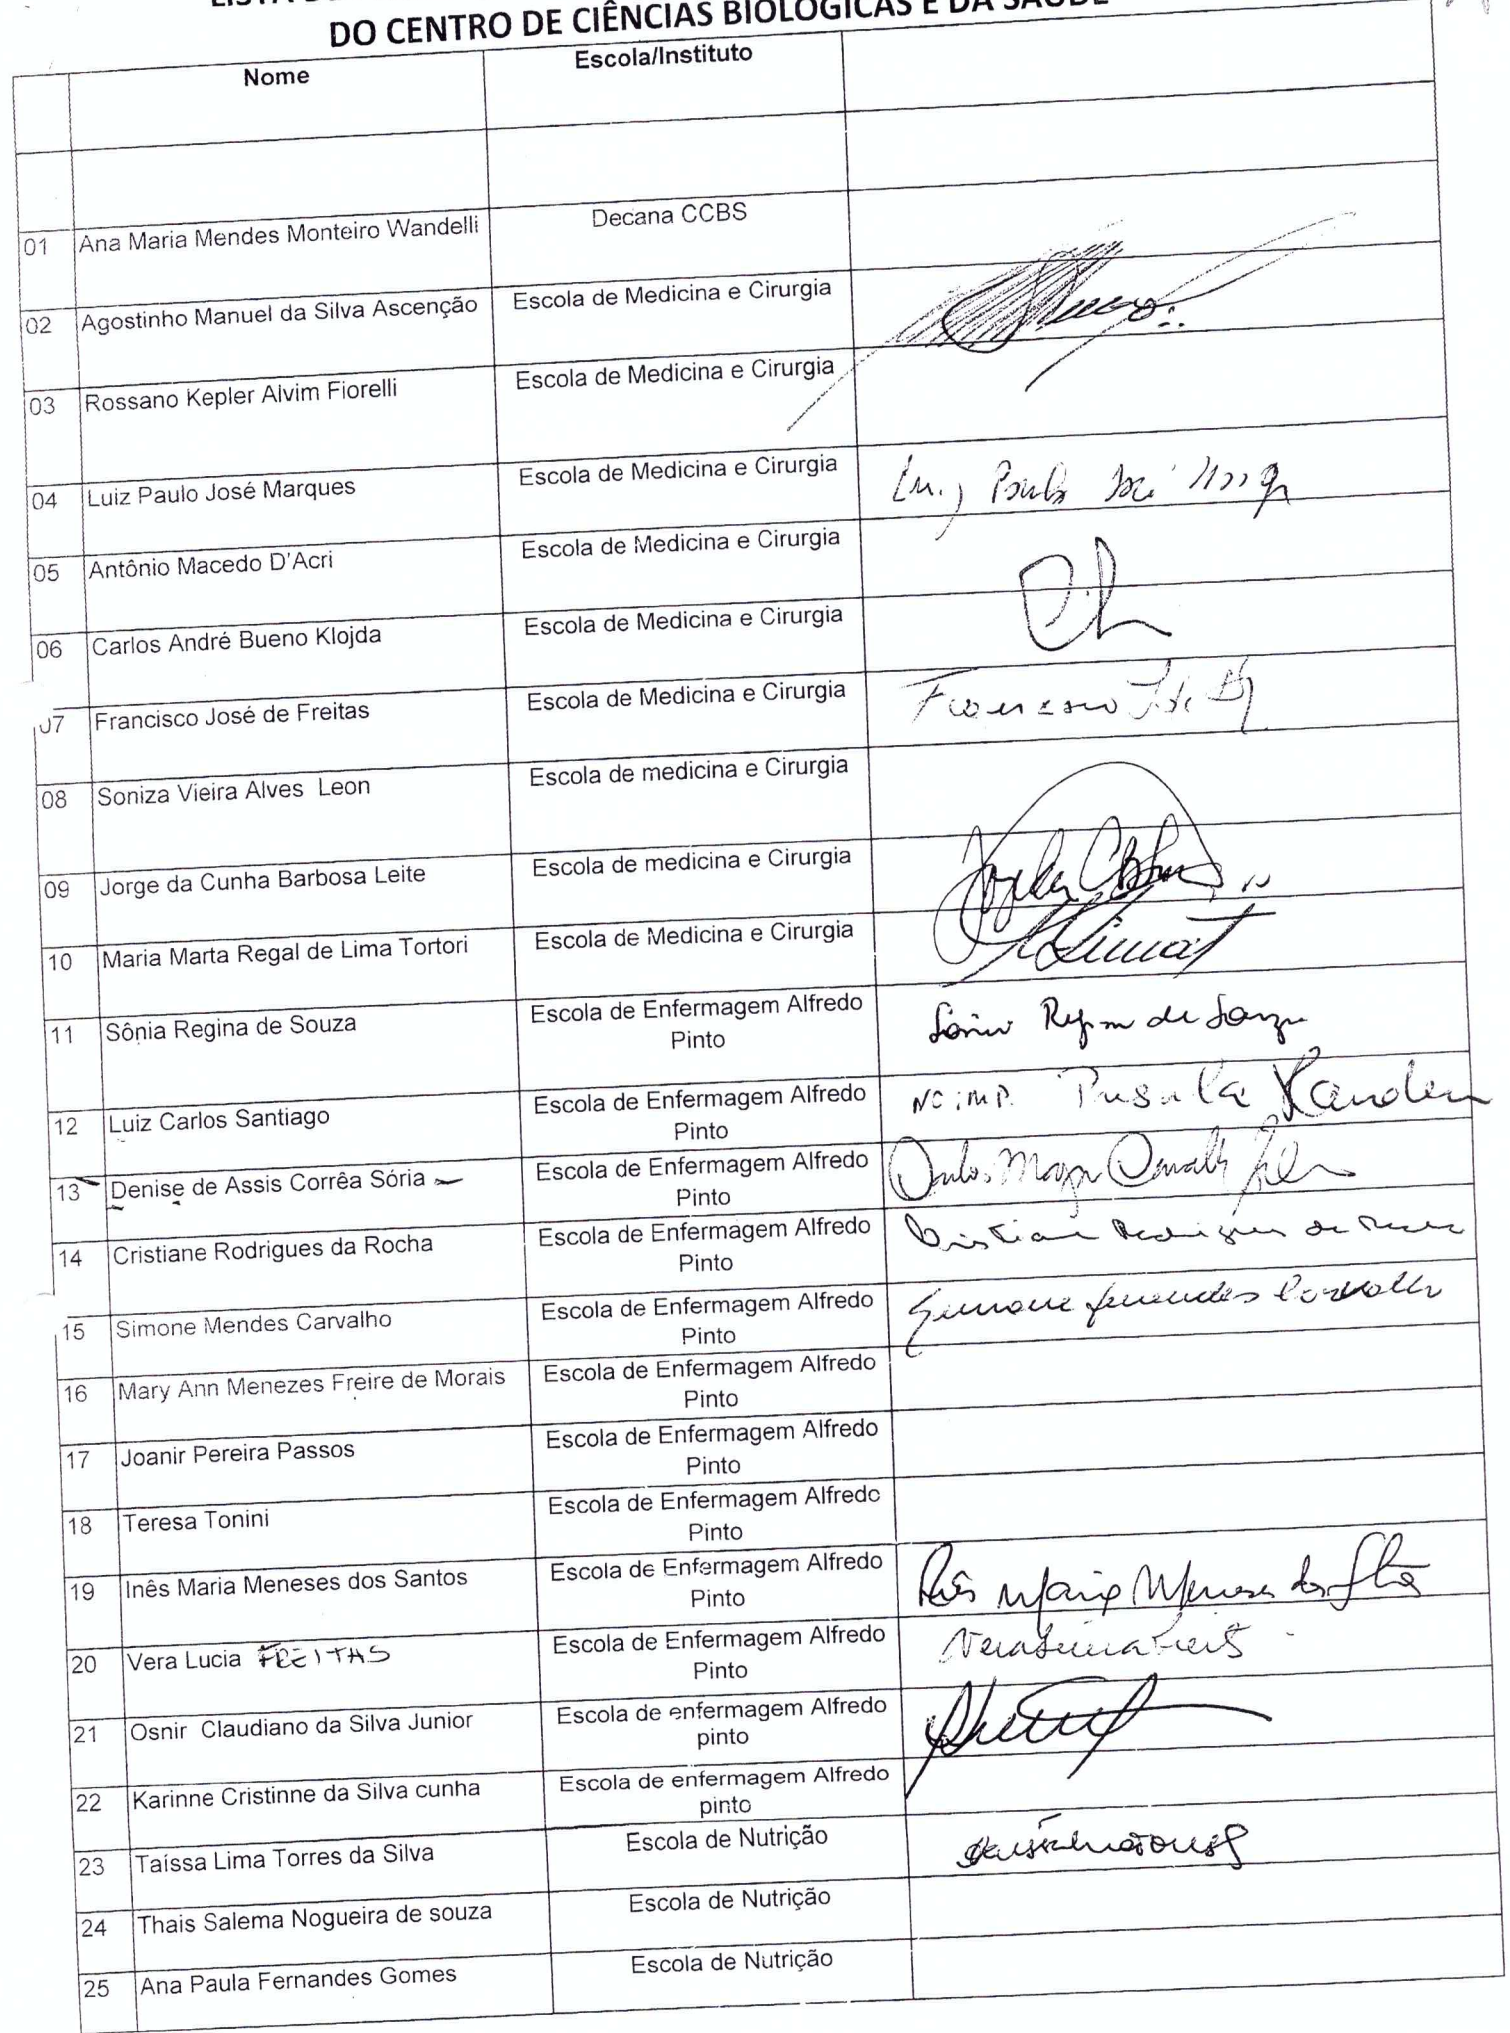 DO CENTRO DE CIÊNCIAS BIOLÓGICAS E DA SAÚDE
Nome Escola/Instituto
01 Ana Maria Mendes Monteiro Wandelli Decana CCBS
02 Agostinho Manuel da Silva Ascenção Escola de Medicina e Cirurgia
03 Rossano Kepler Alvim Fiorelli Escola de Medicina e Cirurgia
04 Luiz Paulo José Marques Escola de Medicina e Cirurgia
05 Antônio Macedo D'Acri Escola de Medicina e Cirurgia
06 Carlos André Bueno Klojda Escola de Medicina e Cirurgia
07 Francisco José de Freitas Escola de Medicina e Cirurgia
08 Soniza Vieira Alves Leon Escola de medicina e Cirurgia
09 Jorge da Cunha Barbosa Leite Escola de medicina e Cirurgia
10 Maria Marta Regal de Lima Tortori Escola de Medicina e Cirurgia
11 Sônia Regina de Souza Escola de Enfermagem Alfredo
Pinto
12 Luiz Carlos Santiago Escola de Enfermagem Alfredo
Pinto
13 Denise de Assis Corrêa Sória Escola de Enfermagem Alfredo
Pinto
14 Cristiane Rodrigues da Rocha Escola de Enfermagem Alfredo
Pinto
15 Simone Mendes Carvalho Escola de Enfermagem Alfredo
Pinto
16 Mary Ann Menezes Freire de Morais Escola de Enfermagem Alfredo
Pinto
17 Joanir Pereira Passos Escola de Enfermagem Alfredo
Pinto
18 Teresa Tonini Escola de Enfermagem Alfredo
Pinto
19 Inês Maria Meneses dos Santos Escola de Enfermagem Alfredo
Pinto
20 Vera Lucia FREITAS Escola de Enfermagem Alfredo
Pinto
21 Osnir Claudiano da Silva Junior Escola de enfermagem Alfredo
pinto
22 Karinne Cristinne da Silva cunha Escola de enfermagem Alfredo
pinto
23 Taíssa Lima Torres da Silva Escola de Nutrição
24 Thais Salema Nogueira de souza Escola de Nutrição
25 Ana Paula Fernandes Gomes Escola de Nutrição